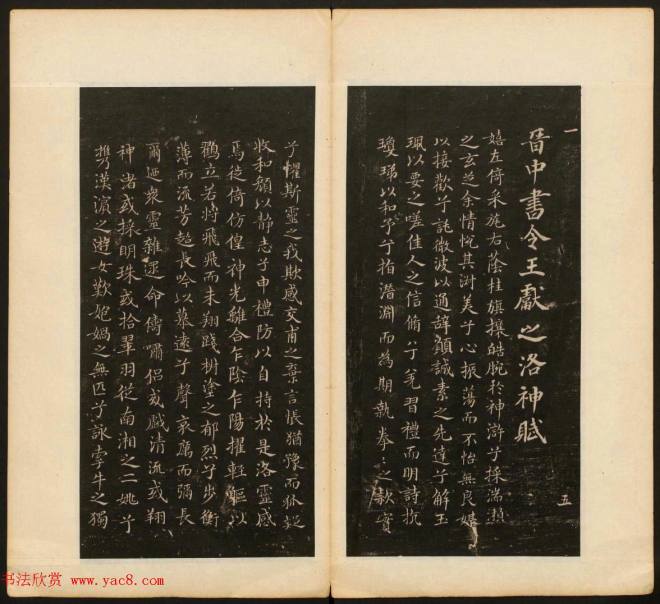 一
晉中書令王獻之洛神賦
嬉左倚采旄右蔭桂旗攘皓腕於神滸兮採湍瀨
之玄芝余情悅其淑美兮心振蕩而不怡無良媒
以接歡兮託微波以通辭願誠素之先達兮解玉
珮以要之嗟佳人之信脩兮羌習禮而明詩抗
瓊珶以和予兮指潛淵而為期執拳拳之款實
五
兮懼斯靈之我欺感交甫之棄言悵猶豫而狐疑
收和顏以靜志兮申禮防以自持於是洛靈感
焉徙倚仿偟神光離合乍陰乍陽擢輕軀以
鶴立若將飛而未翔踐椒塗之郁烈兮步衡
薄而流芳超長吟以慕遠兮聲哀厲而彌長
爾迺眾靈雜遝命儔嘯侶或戲清流或翔
神渚或採明珠或拾翠羽從南湘之二姚兮
攜漢濱之遊女歎媧之無匹兮詠牽牛之獨
书法欣赏 www.yac8.com